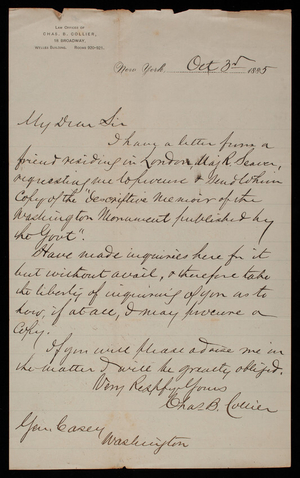 Law Offices of
CHAS. B. COLLIER,
BROADWAY,
New York, Oct 3rd 1885
My Dear Sir
I have a letter from a
friend residing in London, Maj R. Seaver,
requesting me to procure & send to him
Copy of the "descriptive Memoir of the
Washington Monument published by
the Govt".
Have made inquiries here for it
but without avail, & therefore take
the liberty of inquiring of you as to
how, if at all, I may procure a
Copy.
If you will please advise me in
the matter I will be greatly obliged.
Very Respfy Yours
Chas. B. Collier
Gen. Casey
Washington